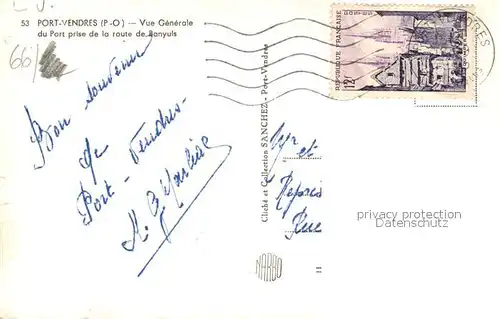 53 PORT-VENDRES (P-O) — Vue Générale
du Port prise de la route de Banyuls
66/
Bon souvenir
de
Port-Vendres
Cliché et Collection SANCHEZ - Port-Vendres
REPUBLIQUE FRANÇAISE
POSTES
12F
NDRES
Mr et
Rue
privacy protection
Datenschutz
NARBO